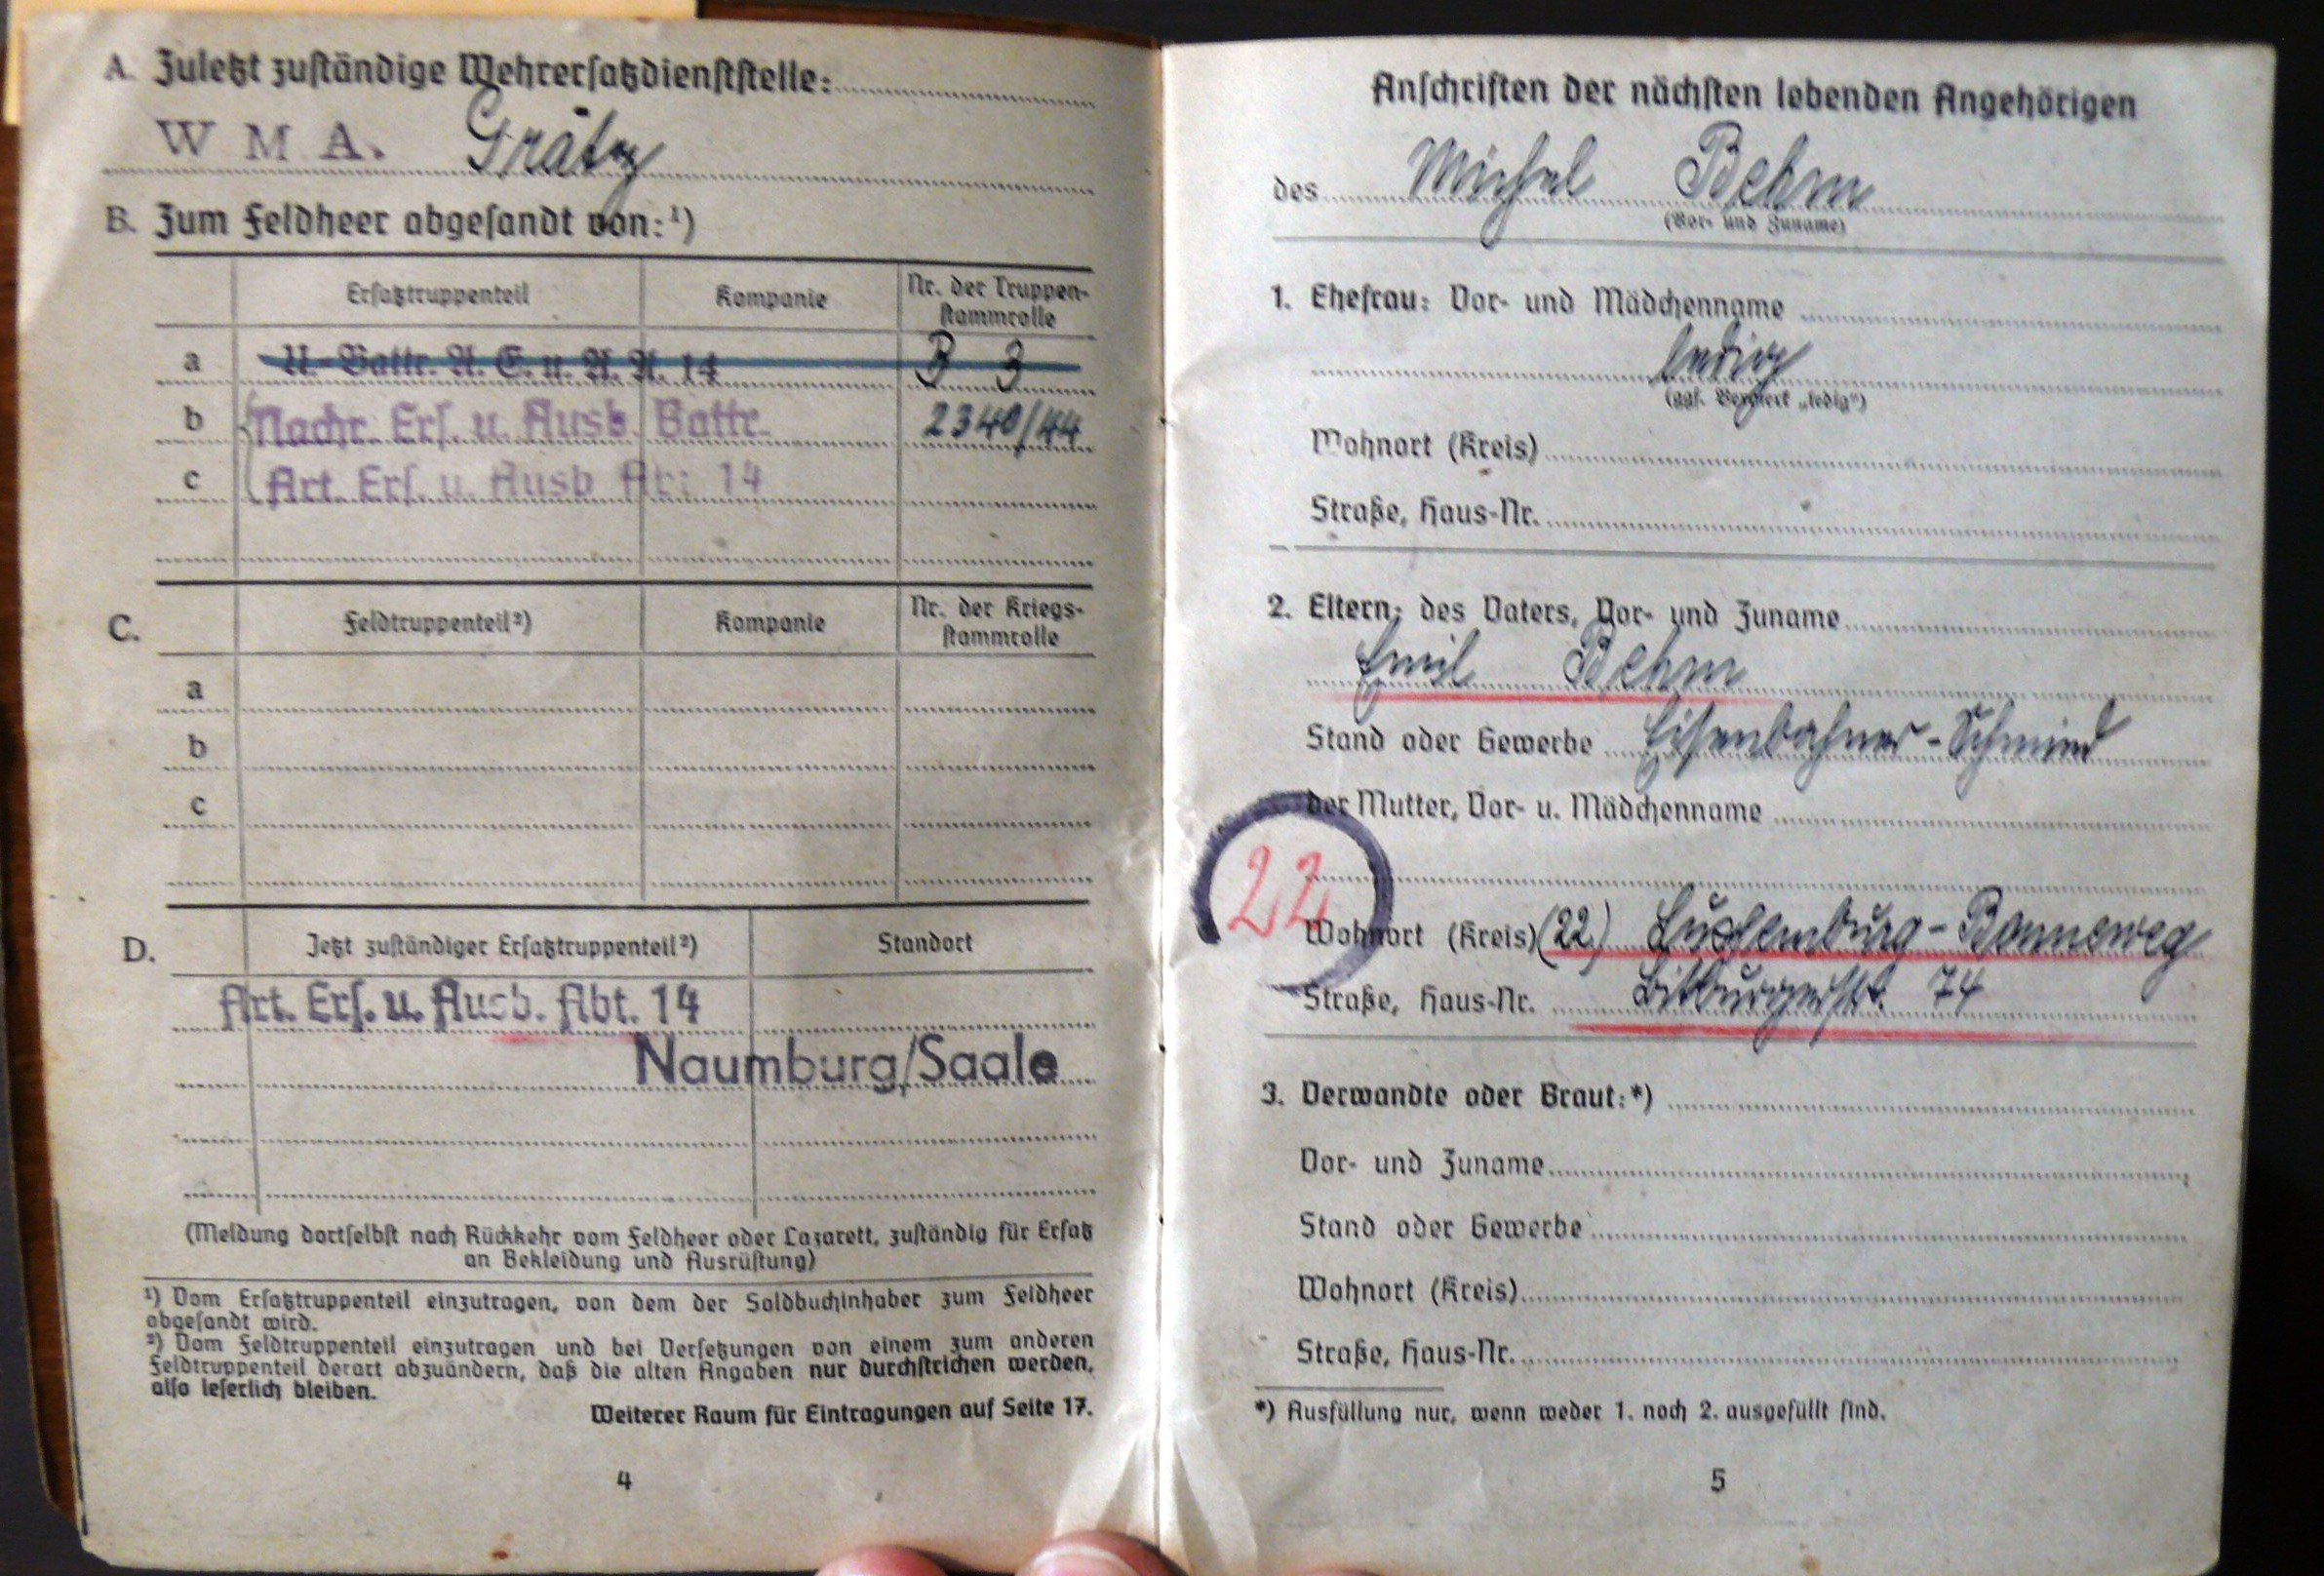 A. Zuletzt zuständige Wehrersatzdienststelle:
W M A. Grätz
B. Zum Feldheer abgesandt von:¹)
Ersatztruppenteil Kompanie Nr. der Truppen-
stammrolle
a U-Battr. A. E. u. A. A. 14 B 3
b Nachr. Ers. u. Ausb. Battr. 2340/44
c Art. Ers. u. Ausb Abt 14
C. Feldtruppenteil²) Kompanie Nr. der Kriegs-
stammrolle
a
b
c
D. Jetzt zuständiger Ersatztruppenteil²) Standort
Art. Ers. u. Ausb. Abt. 14
Naumburg/Saale
(Meldung dortselbst nach Rückkehr vom Feldheer oder Lazarett, zuständig für Ersatz
an Bekleidung und Ausrüstung)
¹) Vom Ersatztruppenteil einzutragen, von dem der Soldbuchinhaber zum Feldheer
abgesandt wird.
²) Vom Feldtruppenteil einzutragen und bei Versetzungen von einem zum anderen
Feldtruppenteil derart abzuändern, daß die alten Angaben nur durchstrichen werden,
also leserlich bleiben.
Weiterer Raum für Eintragungen auf Seite 17.
4
Anschriften der nächsten lebenden Angehörigen
des Michel Behm
(Vor- und Zuname)
1. Ehefrau: Vor- und Mädchenname
ledig
(ggf. Vermerk „ledig")
Wohnort (Kreis)
Straße, Haus-Nr.
2. Eltern: des Vaters, Vor- und Zuname
Emil Behm
Stand oder Gewerbe Eisenbahner-Schmied
der Mutter, Vor- u. Mädchenname
22
Wohnort (Kreis) (22) Luxemburg-Bonneweg
Straße, Haus-Nr. Bitburgerstr. 74
3. Verwandte oder Braut:*)
Vor- und Zuname
Stand oder Gewerbe
Wohnort (Kreis)
Straße, Haus-Nr.
*) Ausfüllung nur, wenn weder 1. noch 2. ausgefüllt sind.
5